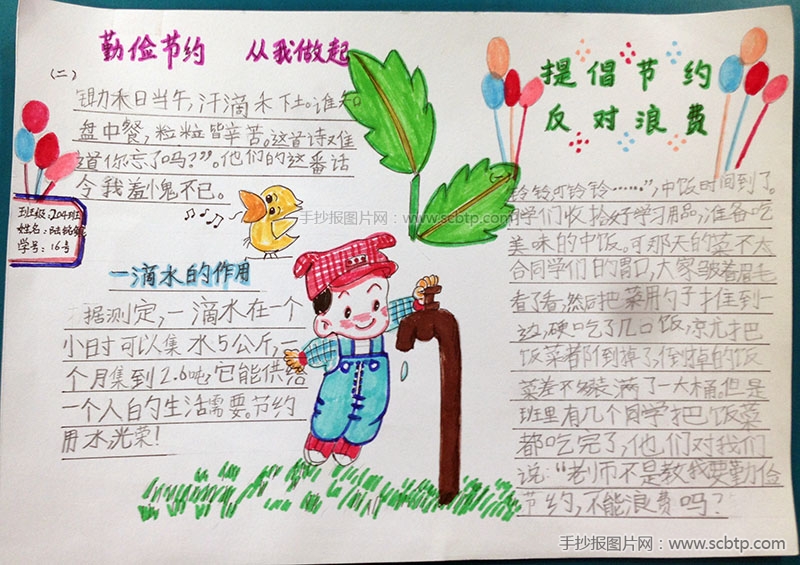 勤俭节约 从我做起
(二)
锄禾日当午,汗滴禾下土。谁知
盘中餐,粒粒皆辛苦。这首诗难
道你忘了吗?”。他们的这番话
令我羞愧不已。
班级:204班
姓名:
学号:16号
一滴水的作用
据测定,一滴水在一个
小时可以集水5公斤,一
个月集到2.6吨,它能供给
一个人的生活需要。节约
用水光荣!
提倡节约
反对浪费
(一)
铃铃叮铃铃……”,中饭时间到了。
同学们收拾好学习用品,准备吃
美味的中饭。可那天的菜不太
合同学们的胃口,大家皱着眉毛
看了看,然后把菜用勺子拄到一
边,硬吃了几口饭,就把
饭菜都倒掉了,倒掉的饭
菜差不多装满了一大桶。但是
班里有几个同学把饭菜
都吃完了,他们对我们
说:“老师不是教我要勤俭
节约,不能浪费吗?
手抄报图片网:www.scbtp.com
手抄报图片网:www.scbtp.com